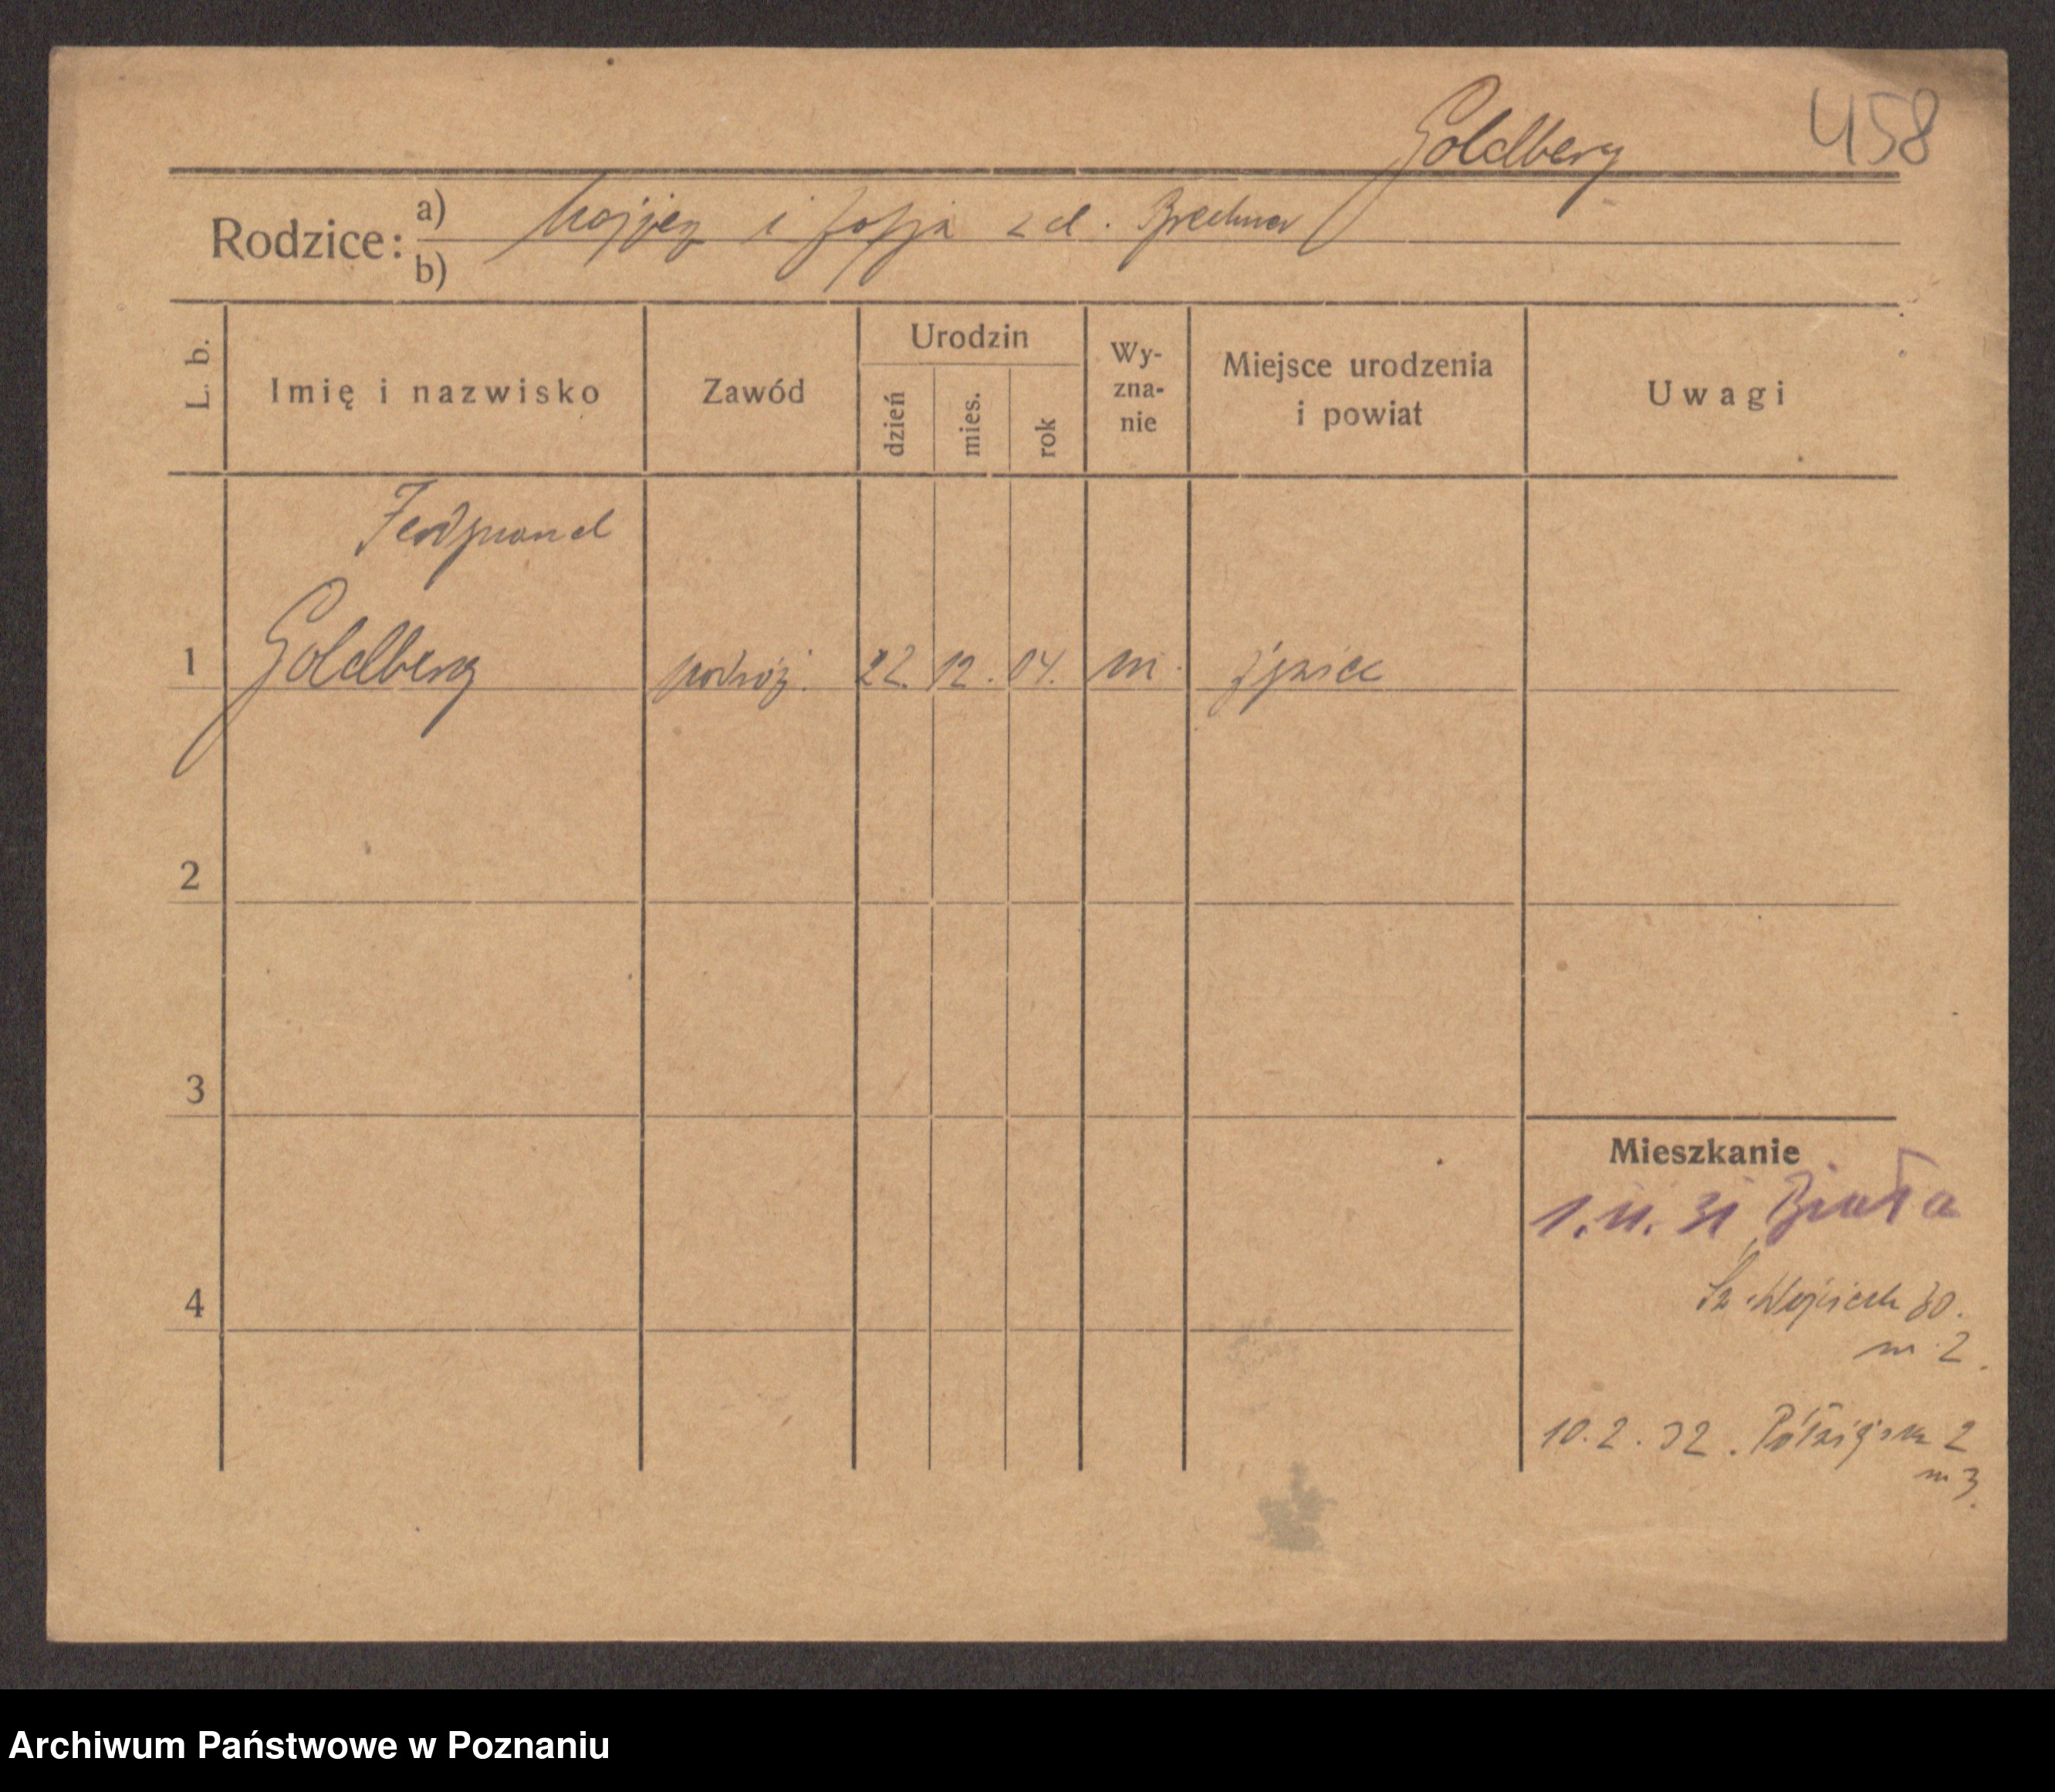 Goldberg 458
Rodzice: a) Mojżesz i Zofja z d. Brechner
b)
L. b.
Imię i nazwisko
Zawód
Urodzin
dzień
mies.
rok
Wy-
zna-
nie
Miejsce urodzenia
i powiat
Uwagi
Ferdynand
1 Goldberg podróż. 22. 12. 04. m.
2
3
4
Mieszkanie
1. 11. 31 Biała
Św Wojciech 30.
m 2.
10. 2. 32. 2
m 3.
Archiwum Państwowe w Poznaniu